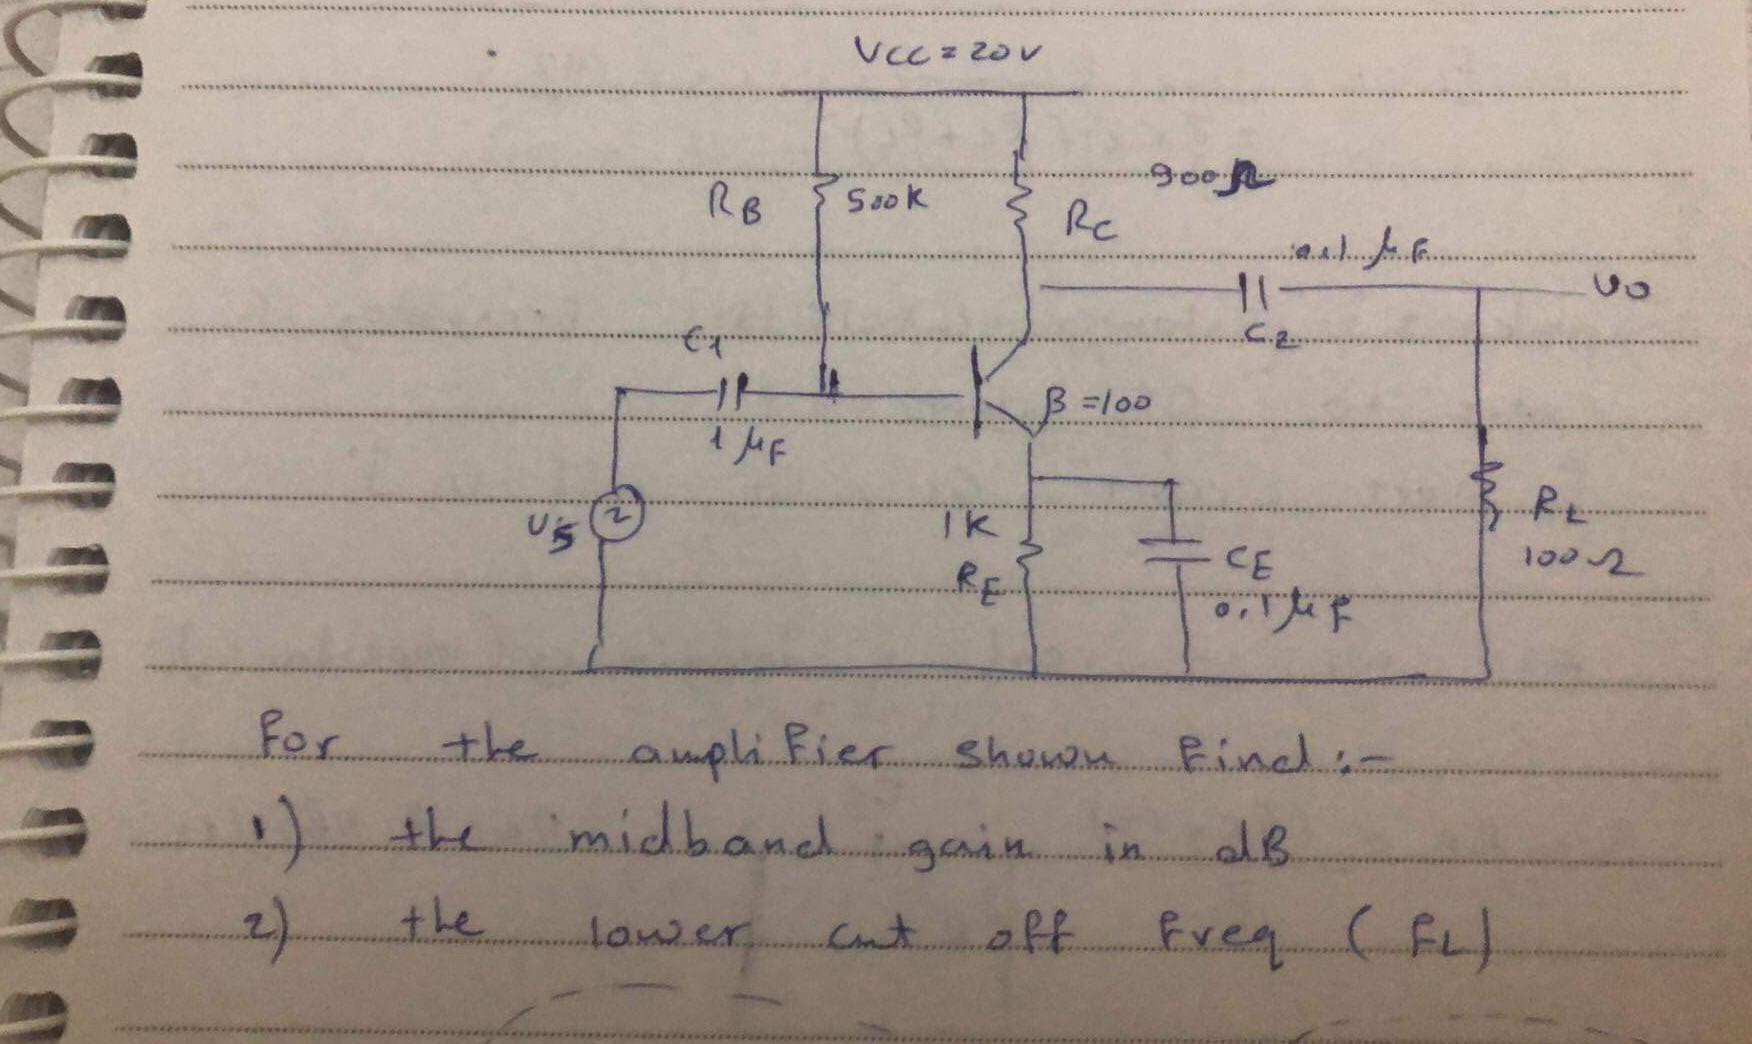 VCC = 20V
RB 500K
RC 900Ω
0.1 μF
C2
Vo
C1
1 μF
β = 100
Vs
1K
RE
CE
0.1 μF
RL
100Ω
For the amplifier shown find :-
1) the midband gain in dB
2) the lower cut off freq (FL)